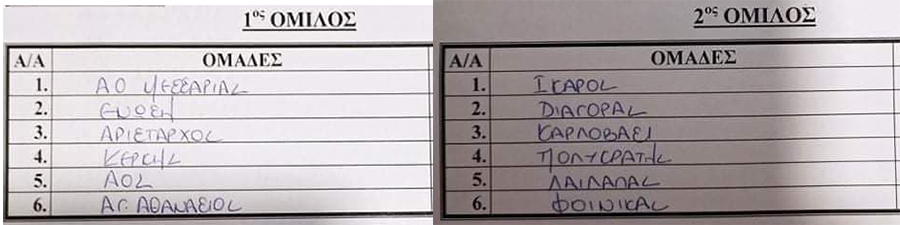 1ος ΟΜΙΛΟΣ
Α/Α ΟΜΑΔΕΣ
1. ΑΟ ΜΕΣΣΑΡΙΑΣ
2. ΕΝΩΣΗ
3. ΑΡΙΣΤΑΡΧΟΣ
4. ΚΕΡΚΗΣ
5. ΑΟΣ
6. ΑΓ. ΑΘΑΝΑΣΙΟΣ
2ος ΟΜΙΛΟΣ
Α/Α ΟΜΑΔΕΣ
1. ΙΚΑΡΟΣ
2. ΔΙΑΓΟΡΑΣ
3. ΚΑΡΛΟΒΑΣΙ
4. ΠΟΛΥΚΡΑΤΗΣ
5. ΛΑΙΛΑΠΑΣ
6. ΦΟΙΝΙΚΑΣ